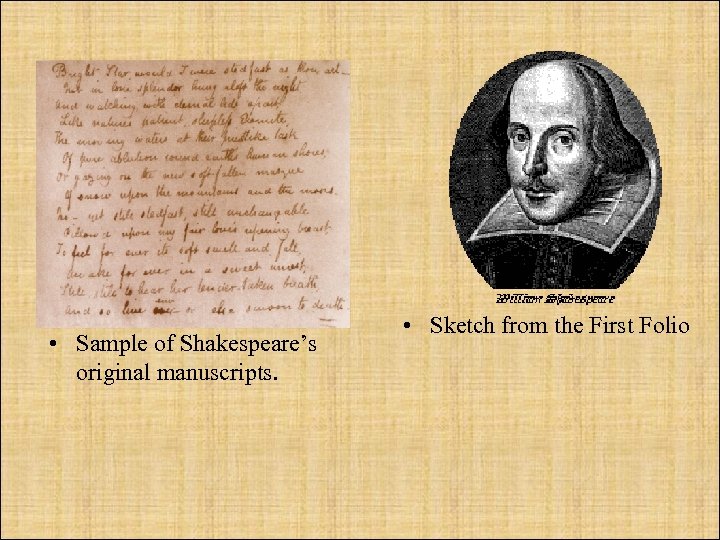 Bright Star, would I were stedfast as thou art —
Not in lone splendor hung aloft the night
And watching, with eternal lids apart,
Like natures patient, sleepless Eremite,
The moving waters at their priestlike task
Of pure ablution round earth's human shores,
Or gazing on the new soft-fallen masque
Of snow upon the mountains and the moors.
No — yet still stedfast, still unchangeable
Pillow'd upon my fair love's ripening breast
To feel for ever its soft swell and fall,
Awake for ever in a sweet unrest,
Still, still to hear her tender-taken breath,
And so live ever or else swoon to death
• Sample of Shakespeare's
original manuscripts.
William Shakespeare
• Sketch from the First Folio